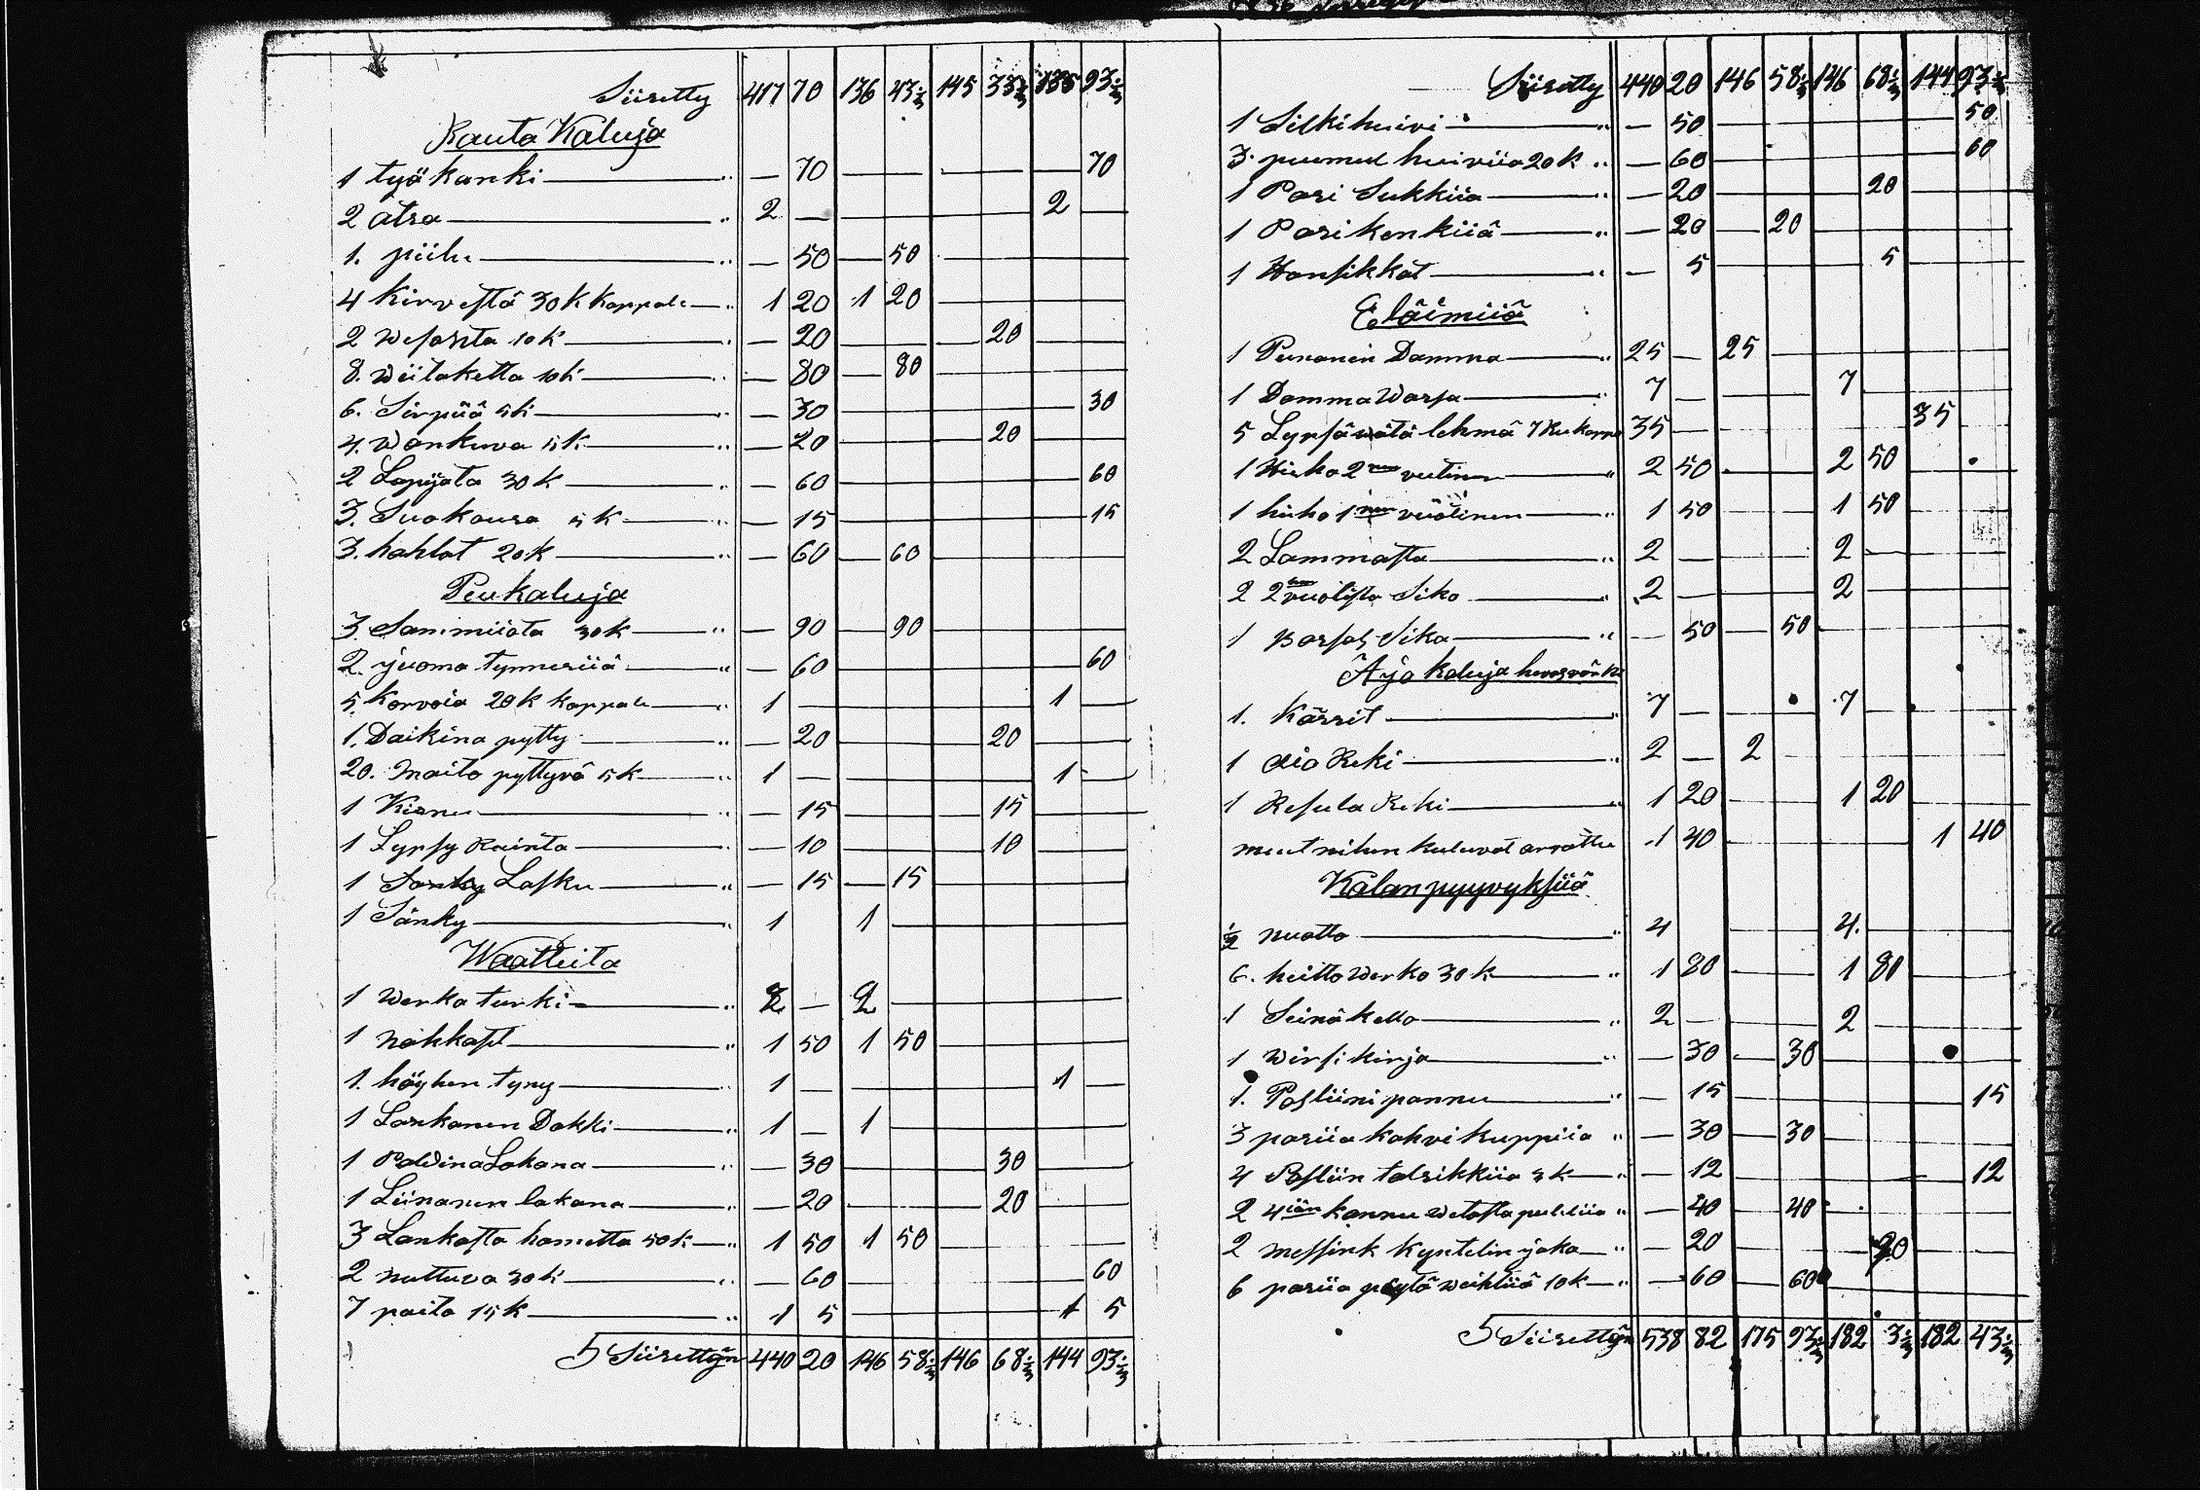 Siiretty 417 70 136 43 1/3 145 33 1/3 135 93 1/3
Rauta Kaluja
1 työkanki — " — 70 70
2 atra — " 2 — 2 —
1. piilu — " — 50 — 50
4 Kirvestä 30 K Kappale — " 1 20 1 20
2 Wesurta 10 K — " — 20 20
8. Wiitaketta 10 K — " — 80 — 80
6. Sirpiiä 5 K — " — 30 30
4. Wankuva 5 K — " — 20 20
2 Lapijata 30 K — " — 60 60
3. Suokousa 5 K — " — 15 15
3. hahlat 20 K — " — 60 — 60
Puukaluja
3. Sammiiota 30 K — " — 90 — 90
2. juoma tynneriiä — " — 60 60
5. Korvoia 20 K kappale — " 1 — 1 —
1. Daikina pytty — " — 20 20
20. Maito pyttyvä 5 K — " 1 — 1 —
1 Kirnu — " — 15 15
1 Lypsy Rainta — " — 10 10
1 Lasku — " — 15 — 15
1 Sänky — " 1 1
Waatteita
1 Werka turki — " 2 — 2
1 nahkaset — " 1 50 1 50
1. höyhen tyny — " 1 — 1 —
1 Lankanen Dakki — " 1 — 1
1 Paldina Lakana — " — 30 30
1 Liinanen lakana — " — 20 20
3 Lankasta hametta 50 K — " 1 50 1 50
2 nuttuva 30 K — " — 60 60
7 paita 15 K — " 1 5 1 5
5 Siirettyn 440 20 146 58 1/3 146 68 1/3 144 93 1/3
Siiretty 440 20 146 58 1/3 146 68 1/3 144 93 1/3
1 Silkihuivi — " — 50 50
3. puumul huiviia 20 K " — 60 60
1 Pari Sukkiia — " — 20 20
1 Pari kenkiiä — " — 20 — 20
1 Hansikkat — " — 5 5
Eläimiiä
1 Punanen Damma — " 25 — 25
1 Damma Warsa — " 7 — 7
5 Lypsävätä lehmä 7 Ru kappa 35 — 35
1 Hieho 2 nen vutinen — " 2 50 2 50
1 hieho 1 nen vuotinen — " 1 50 1 50
2 Lammasta — " 2 — 2
2 2 vuotista Sika — " 2 — 2
1 porsas Sika — " — 50 — 50
Ajo kaluja
1. Kärrit — " 7 — 7
1 Aio Reki — " 2 — 2
1 Resula Reki — " 1 20 1 20
muut niihin kuluvat arvattu 1 40 1 40
Kalanpyyvyksiiä
1/2 nuotta — " 4 4
6. heitto Werko 30 K — " 1 80 1 80
1 Seinä kello — " 2 — 2
1 Wirsikirja — " — 30 — 30
1. Posliini pannu — " — 15 15
3 pariia kahvi kuppiia " — 30 — 30
4 Posliin talrikkiia 3 K — " — 12 12
2 4 iän kannu vetosta pulliia " — 40 — 40
2 messink kyntelin jaka — " — 20 20
6 pariia pöytä weihtiiä 10 K — " — 60 60
5 Siirettyn 538 82 175 93 1/3 182 3 1/3 182 43 1/3